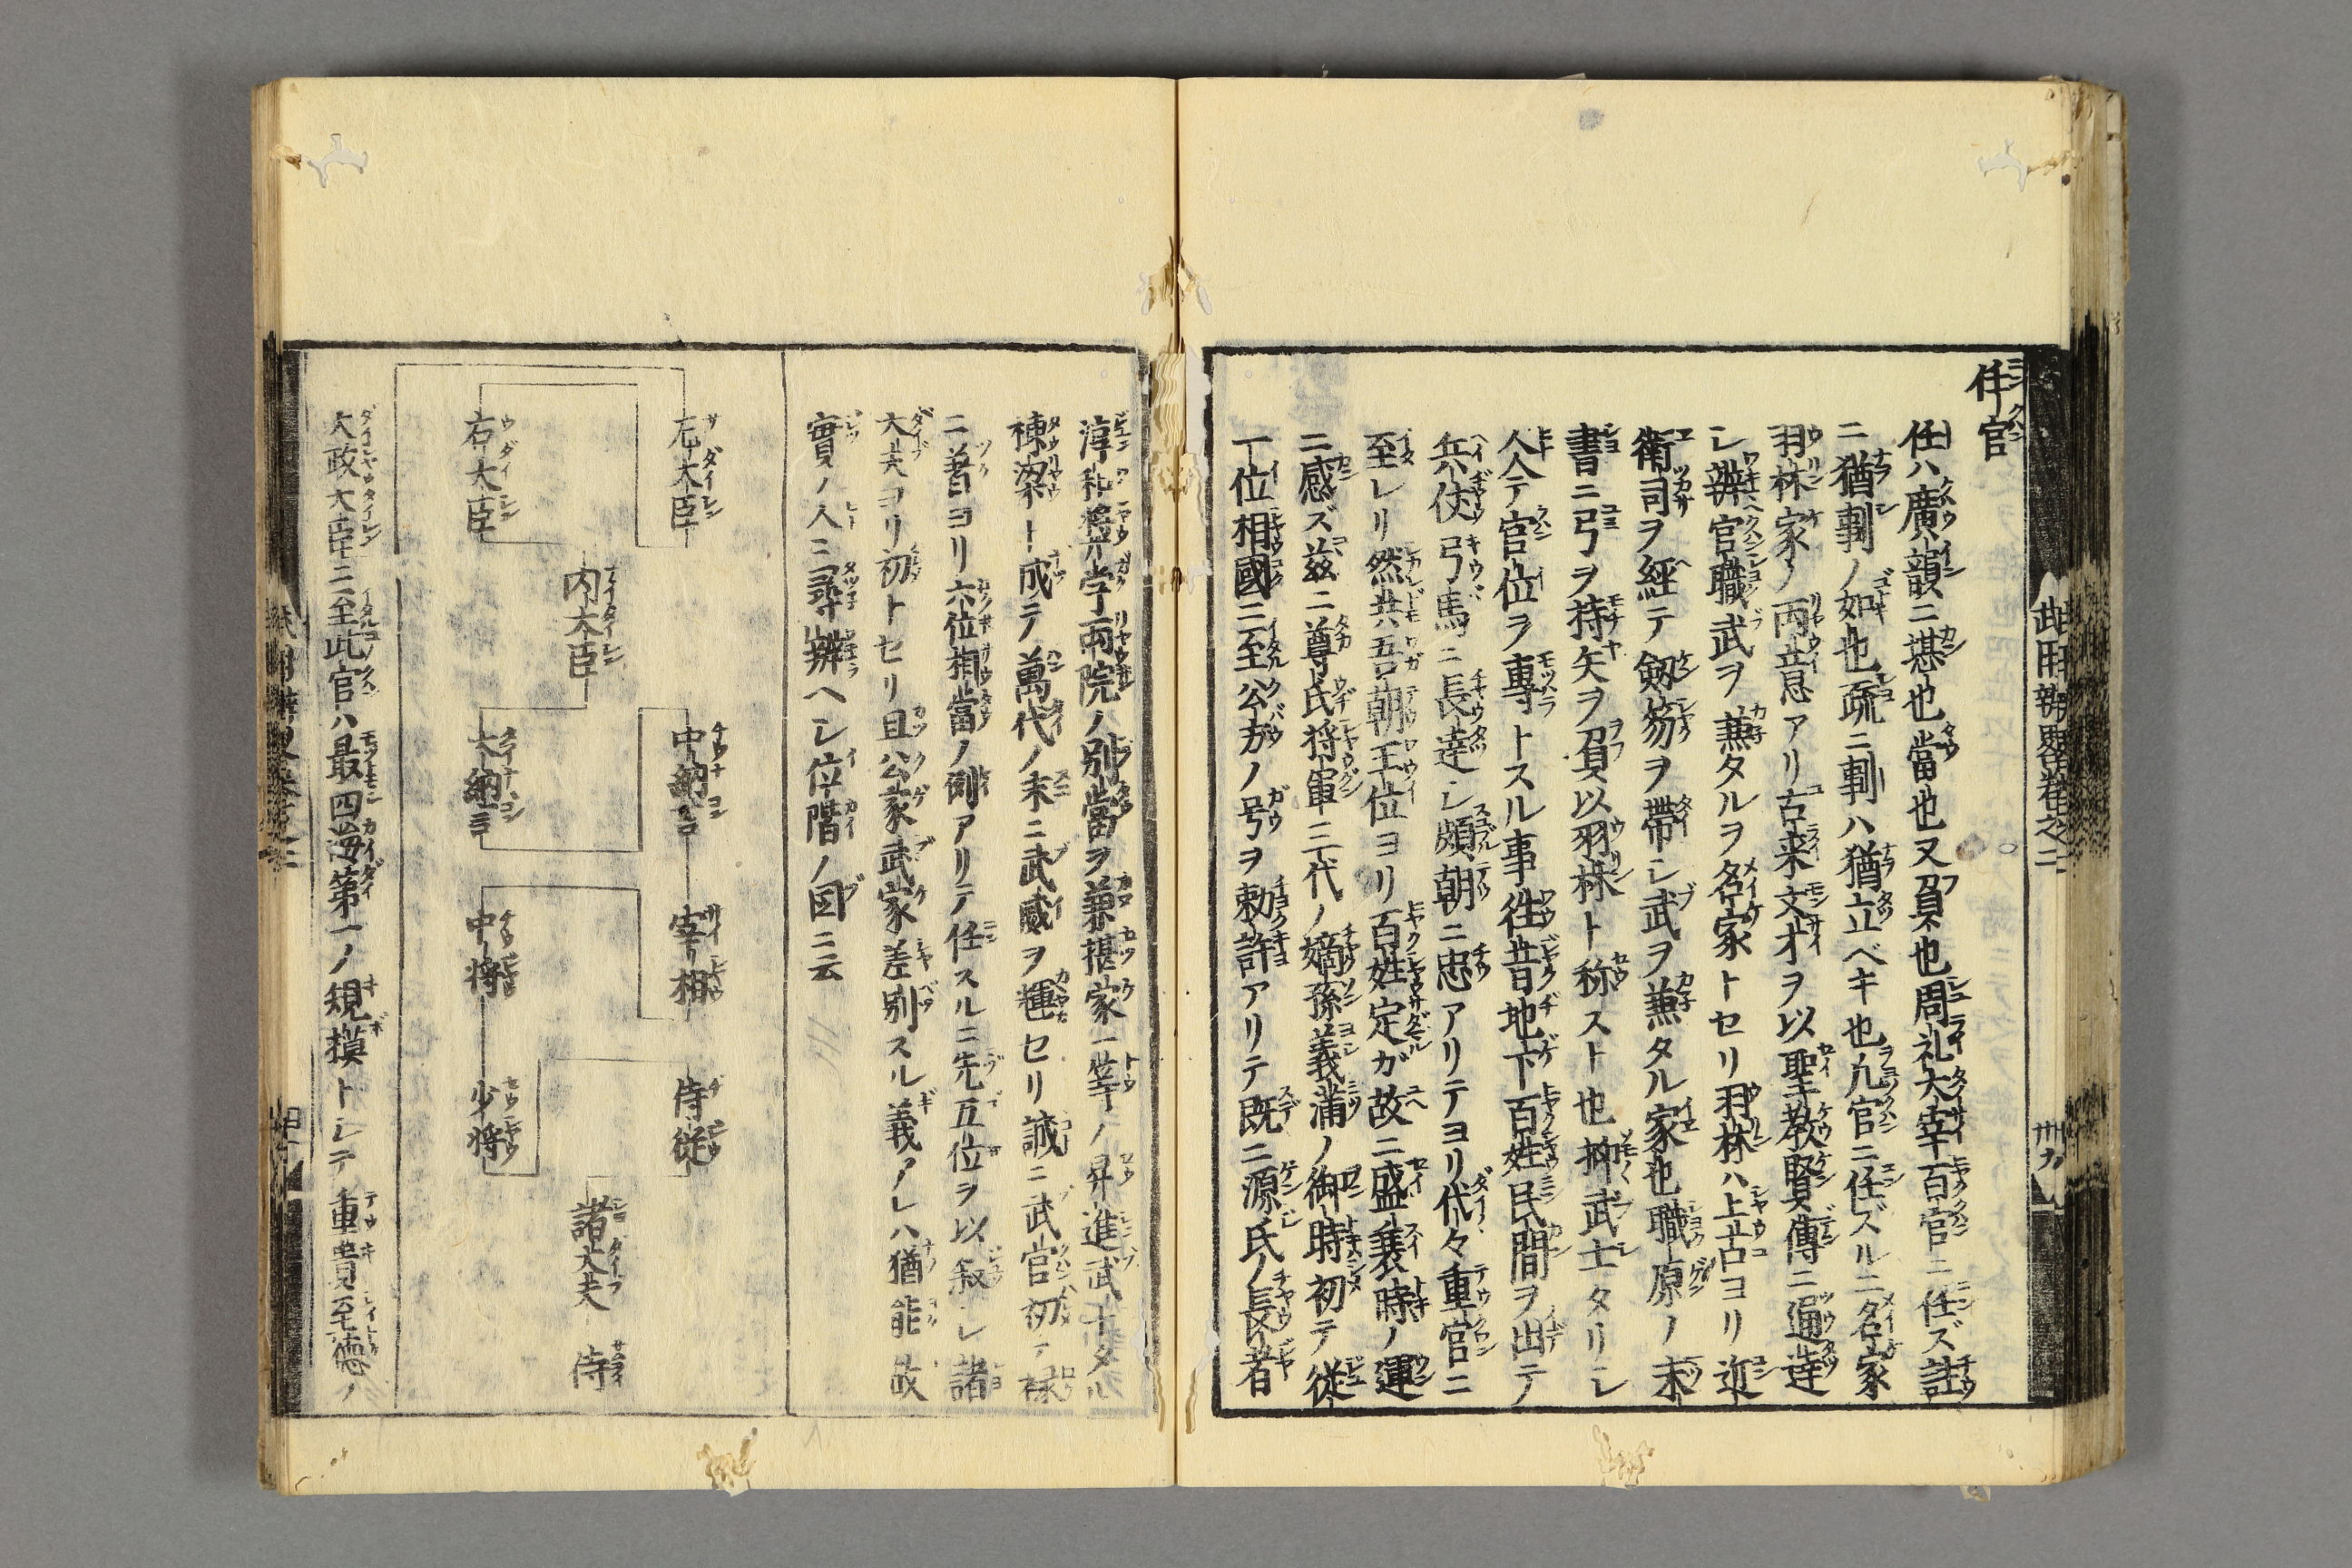 任官
任ハ廣韻ニ堪也當也又負也周礼大宰百官ニ任ズ註
ニ猶剚ノ如也疏ニ剚ハ猶立ベキ也凢官ニ任ズルニ名家
羽林家ノ両意アリ古来文才ヲ以聖教賢傳ニ通達
シ辨官職武ヲ兼タルヲ名家トセリ羽林ハ上古ヨリ近
衛司ヲ經テ劔笏ヲ帶シ武ヲ兼タル家也職原ノ末
書ニ弓ヲ持矢ヲ負以羽林ト称スト也抑武士タリシ
人今テ官位ヲ專トスル事徃昔地下百姓民間ヲ出テ
兵仗弓馬ニ長達シ頗朝ニ忠アリテヨリ代々重官ニ
至レリ然共吾朝王位ヨリ百姓定ガ故ニ盛衰時ノ運
ニ感ズ茲ニ尊氏将軍三代ノ嫡孫義満ノ御時初テ従
一位相國ニ至公方ノ号ヲ勅許アリテ既ニ源氏ノ長者
武用辨畧卷之二
卅九
淳和奬学両院ノ別當ヲ兼攝家一等ノ昇進武士タル
棟梁ト成テ萬代ノ末ニ武威ヲ輝セリ誠ニ武官初テ禄
ニ着ヨリ六位相當ノ例アリテ任スルニ先五位ヲ以叙シ諸
大夫ヨリ初トセリ且公家武家差別スル義アレハ猶能故
實ノ人ニ尋辨ヘシ位階ノ図ニ云
左大臣
右大臣
内大臣
中納言
大納言
宰相
中将
侍従
少将
諸大夫
侍
大政大臣ニ至此官ハ最四海第一ノ規摸トシテ重貴至德ノ